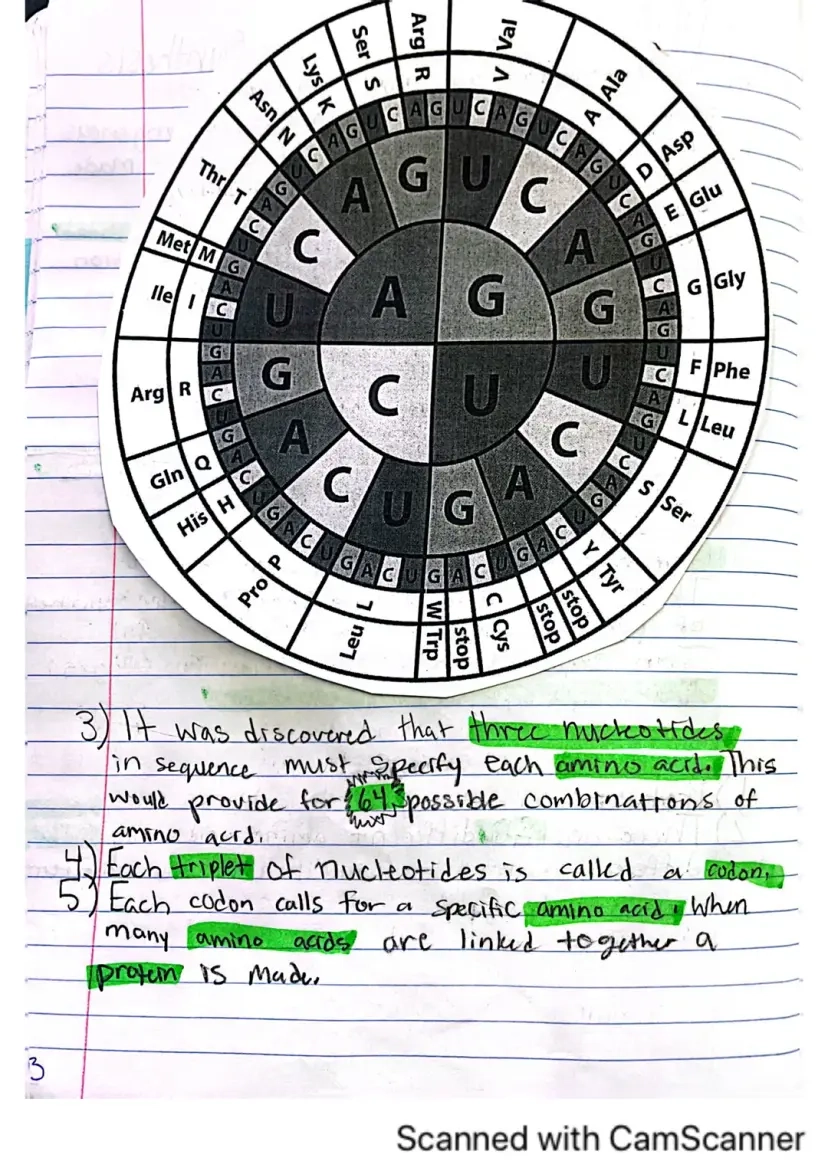 Val
Arg
Ser
Lys
Asn
Thr
Met
Ile
Arg
Gln
His
Pro
Leu
Trp
stop
Cys
stop
stop
Tyr
Ser
Leu
Phe
Gly
Glu
Asp
Ala
V
R
S
K
N
T
M
I
R
Q
H
P
L
W
C
Y
S
L
F
G
E
D
A
G U C A G U C A G U C A G U C A
A G
C U
3) It was discovered that three nucleotides
in sequence must specify each amino acid. This
would provide for 64 possible combinations of
amino acid.
4) Each triplet of nucleotides is called a codon.
5) Each codon calls for a specific amino acid. When
many amino acids are linked together a
protein is made.
3
Scanned with CamScanner